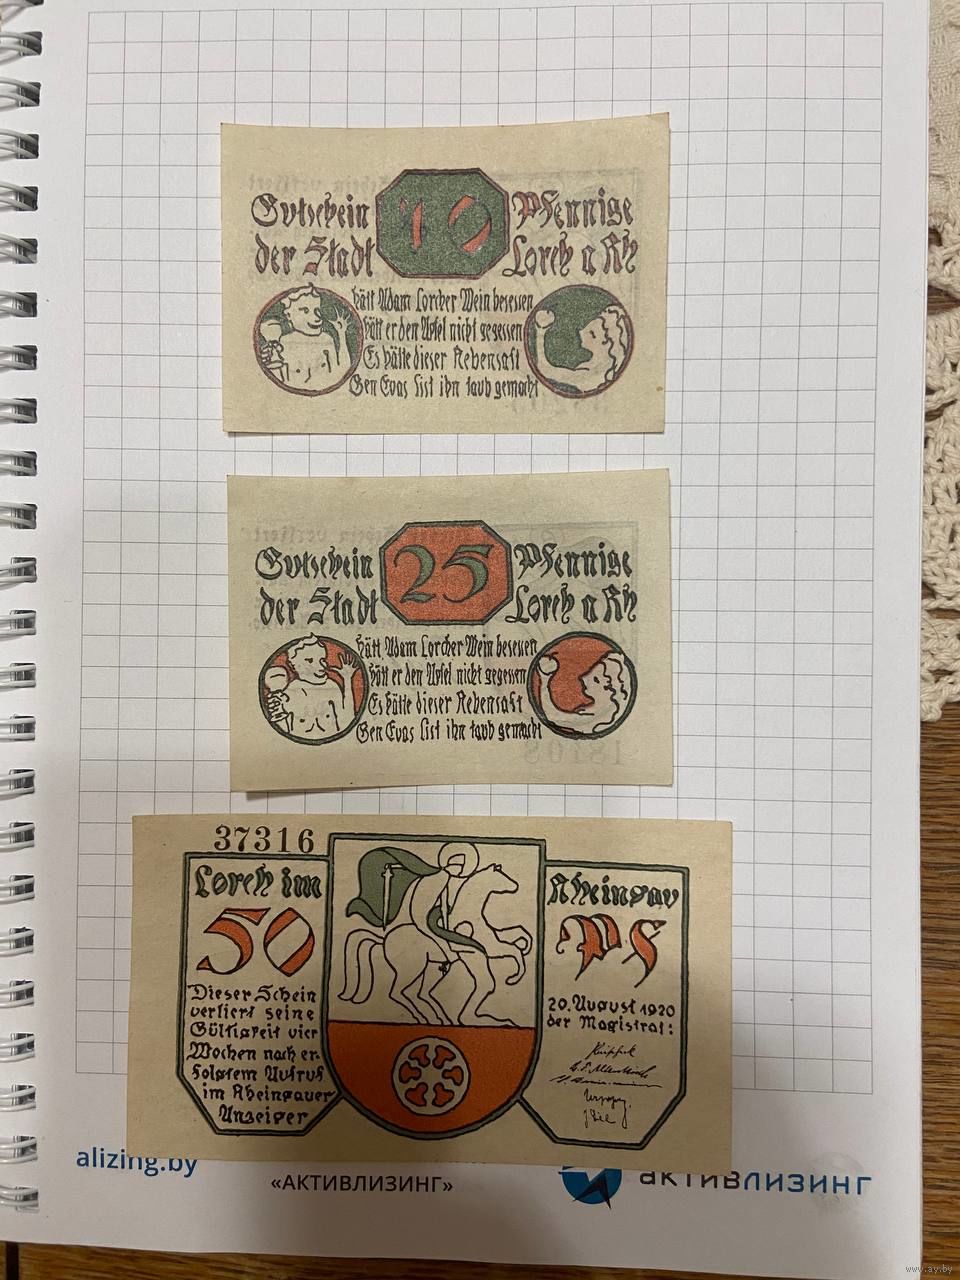 Gutschein 10 Pfennige
der Stadt Lorch a Rh
hätt Adam Lorcher Wein besessen
hätt er den Apfel nicht gegessen
Es hätte dieser Rebensaft
Gen Evas List ihn taub gemacht
Gutschein 25 Pfennige
der Stadt Lorch a Rh
hätt Adam Lorcher Wein besessen
hätt er den Apfel nicht gegessen
Es hätte dieser Rebensaft
Gen Evas List ihn taub gemacht
18708
37316
Lorch im
50
Dieser Schein
verliert seine
Gültigkeit vier
Wochen nach er-
folgtem Aufruf
im Rheingauer
Anzeiger
Rheingau
Pf
20. August 1920
der Magistrat:
alizing.by
«АКТИВЛИЗИНГ»
активлизинг
www.ay.by